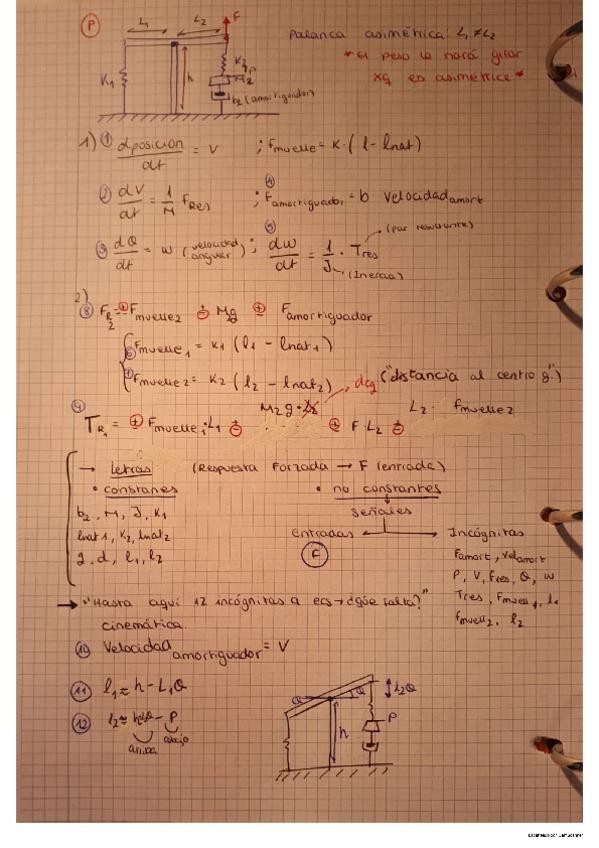 P
L₁ L₂ F
Palanca asimétrica: L₁ ≠ L₂
*el peso lo hará girar
xq es asimétrica*
K₁ h K₂ P M₂
b₂ (amortiguador)
1) ① dposicion/dt = V ; Fmuelle = K · (l - lnat)
② dV/dt = 1/M FRes ; ④ Famortiguador = b · velocidad amort
③ dθ/dt = w (velocidad angular) ; ⑤ dw/dt = 1/J · Tres (par resultante)
(Inercia)
2)
⑧ FR2 = + Fmuelle2 - Mg + Famortiguador
⑥ Fmuelle1 = K1 (l1 - lnat1)
⑦ Fmuelle2 = K2 (l2 - lnat2)
dcg ("distancia al centro g.")
M2g · L2 · Fmuelle2
TR1 = + Fmuelle1 · L1 + F · L2
→ letras (Respuesta Forzada → F (entrada)
• constantes • no constantes
b2, M, J, K1 señales
lnat1, K2, lnat2 entradas Incógnitas
F
Famort, velamort
P, V, Fres, θ, w
Tres, Fmuell1, l1
Fmuell2, l2
→ "Hasta aquí 12 incógnitas 9 ecs → ¿qué falta?"
cinemática.
⑩ Velocidad amortiguador = V
⑪ l1 ≈ h - L1θ
⑫ l2 ≈ - P
arriba abajo
θ θ L2θ
h P